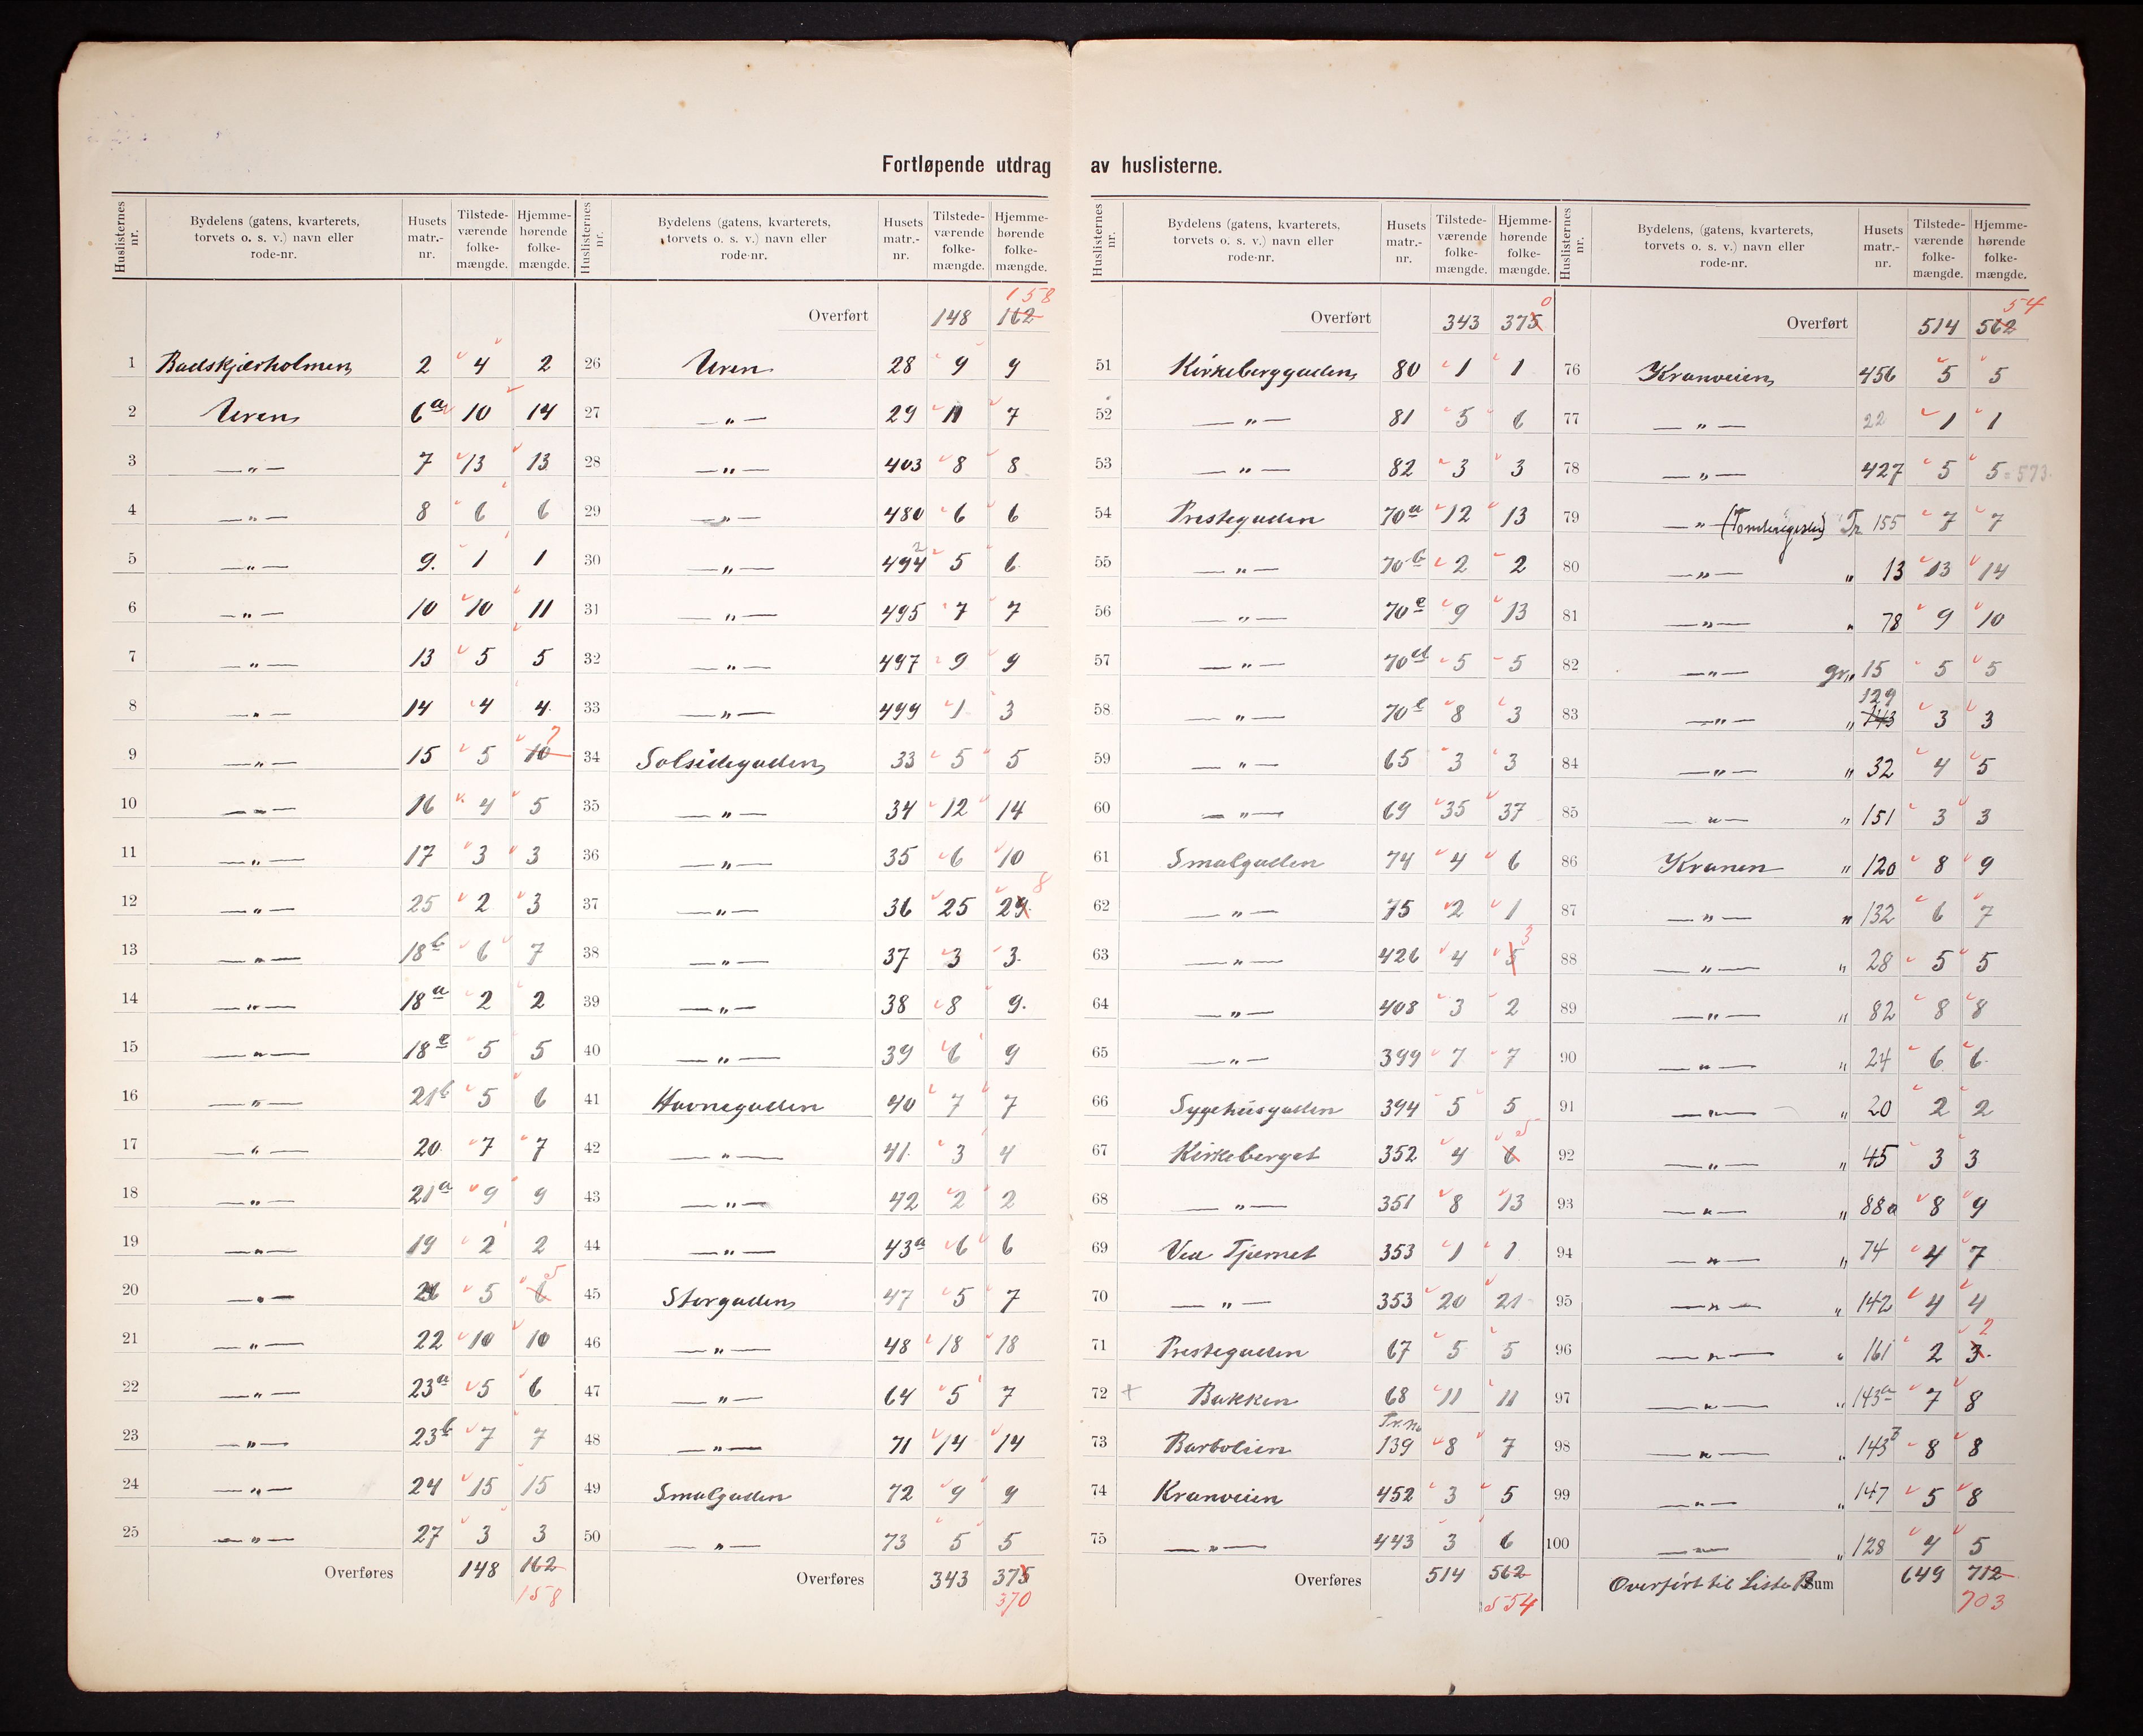 Fortløpende utdrag av huslisterne.
Huslisternes nr. Bydelens (gatens, kvarterets, torvets o. s. v.) navn eller rode-nr. Husets matr.-nr. Tilstede-værende folke-mængde. Hjemme-hørende folke-mængde.
1 Badskjærholmen 2 4 2
2 Uren 6a 10 14
3 —„— 7 13 13
4 —„— 8 6 6
5 —„— 9. 1 1
6 —„— 10 10 11
7 —„— 13 5 5
8 —„— 14 4 4
9 —„— 15 5 10 7
10 —„— 16 4 5
11 —„— 17 3 3
12 —„— 25 2 3
13 —„— 18b 6 7
14 —„— 18a 2 2
15 —„— 18c 5 5
16 —„— 21b 5 6
17 —„— 20 7 7
18 —„— 21a 9 9
19 —„— 19 2 2
20 —„— 26 5 6 5
21 —„— 22 10 10
22 —„— 23a 5 6
23 —„— 23b 7 7
24 —„— 24 15 15
25 —„— 27 3 3
Overføres 148 162
158
Huslisternes nr. Bydelens (gatens, kvarterets, torvets o. s. v.) navn eller rode-nr. Husets matr.-nr. Tilstede-værende folke-mængde. Hjemme-hørende folke-mængde.
158
Overført 148 162
26 Uren 28 9 9
27 —„— 29 11 7
28 —„— 403 8 8
29 —„— 480 6 6
30 —„— 494 2 5 6
31 —„— 495 7 7
32 —„— 497 9 9
33 —„— 499 1 3
34 Solsidegaden 33 5 5
35 —„— 34 12 14
36 —„— 35 6 10
37 —„— 36 25 29 8
38 —„— 37 3 3
39 —„— 38 8 9.
40 —„— 39 6 9
41 Havnegaden 40 7 7
42 —„— 41 3 4
43 —„— 42 2 2
44 —„— 43a 6 6
45 Storgaden 47 5 7
46 —„— 48 18 18
47 —„— 64 5 7
48 —„— 71 14 14
49 Smalgaden 72 9 9
50 —„— 73 5 5
Overføres 343 375
370
Huslisternes nr. Bydelens (gatens, kvarterets, torvets o. s. v.) navn eller rode-nr. Husets matr.-nr. Tilstede-værende folke-mængde. Hjemme-hørende folke-mængde.
Overført 343 375 0
51 Kirkeberggaden 80 1 1
52 —„— 81 5 6
53 —„— 82 3 3
54 Prestegaden 70a 12 13
55 —„— 70b 2 2
56 —„— 70c 9 13
57 —„— 70d 5 5
58 —„— 70e 8 3
59 —„— 65 3 3
60 —„— 69 35 37
61 Smalgaden 74 4 6
62 —„— 75 2 1
63 —„— 426 4 5 3
64 —„— 408 3 2
65 —„— 399 7 7
66 Sygehusgaden 394 5 5
67 Kirkeberget 352 4 6 5
68 —„— 351 8 13
69 Ved Tjernet 353 1 1
70 —„— 353 20 21
71 Prestegaden 67 5 5
72 + Bakken 68 11 11
73 Barbolien Tr. no 139 8 7
74 Kranveien 452 3 5
75 —„— 443 3 6
Overføres 514 562
554
Huslisternes nr. Bydelens (gatens, kvarterets, torvets o. s. v.) navn eller rode-nr. Husets matr.-nr. Tilstede-værende folke-mængde. Hjemme-hørende folke-mængde.
54
Overført 514 562
76 Kranveien 456 5 5
77 —„— 22 1 1
78 —„— 427 5 5 = 573.
79 —„— Tr 155 7 7
80 —„— „ 13 13 14
81 —„— „ 78 9 10
82 —„— gr„ 15 5 5
83 —„— „ 143 129 3 3
84 —„— „ 32 4 5
85 —„— „ 151 3 3
86 Kranen „ 120 8 9
87 —„— „ 132 6 7
88 —„— „ 28 5 5
89 —„— „ 82 8 8
90 —„— „ 24 6 6
91 —„— „ 20 2 2
92 —„— „ 45 3 3
93 —„— „ 88a 8 9
94 —„— „ 74 4 7
95 —„— „ 142 4 4
96 —„— „ 161 2 3 2
97 —„— „ 143a 7 8
98 —„— „ 143b 8 8
99 —„— „ 147 5 8
100 —„— „ 128 4 5
Overført til Liste B Sum 649 712
703